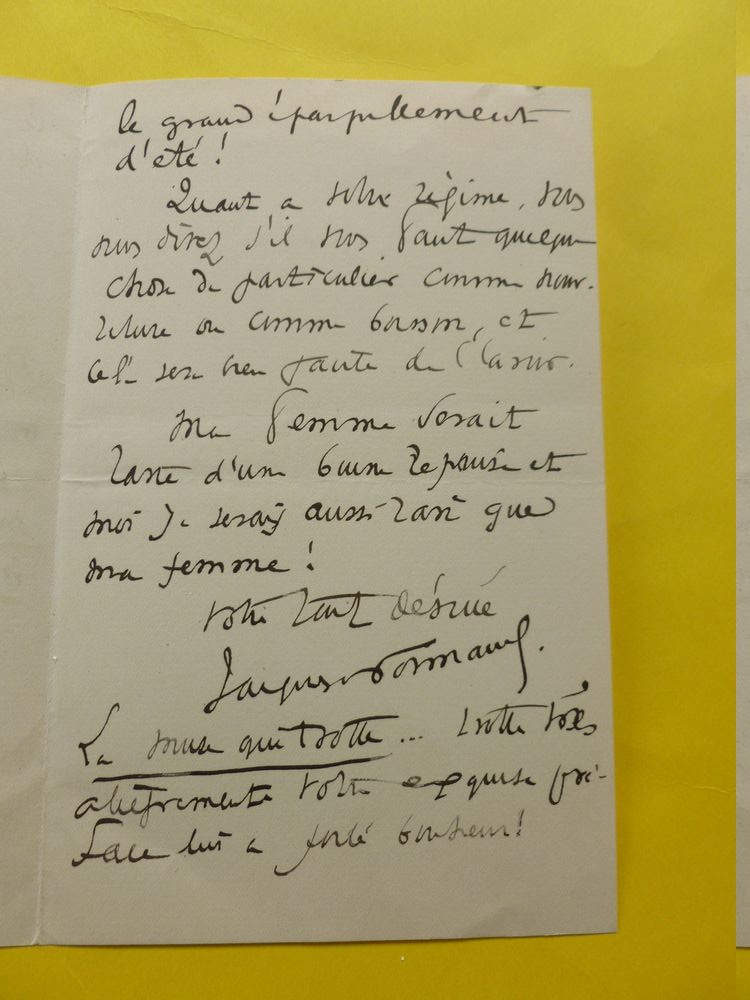 le grand éparpillement
d'été !
Quant a votre régime, vous
nous direz s'il vous faut quelque
chose de particulier comme nour-
riture ou comme boisson, et
cela sera bien facile de l'avoir.
Ma femme serait
ravie d'une bonne réponse et
moi je serais aussi ravi que
ma femme !
Votre tout dévoué
Jacques Normand.
La Muse qui trotte ... trotte très
allègrement. Votre exquise pré-
face lui a porté bonheur !